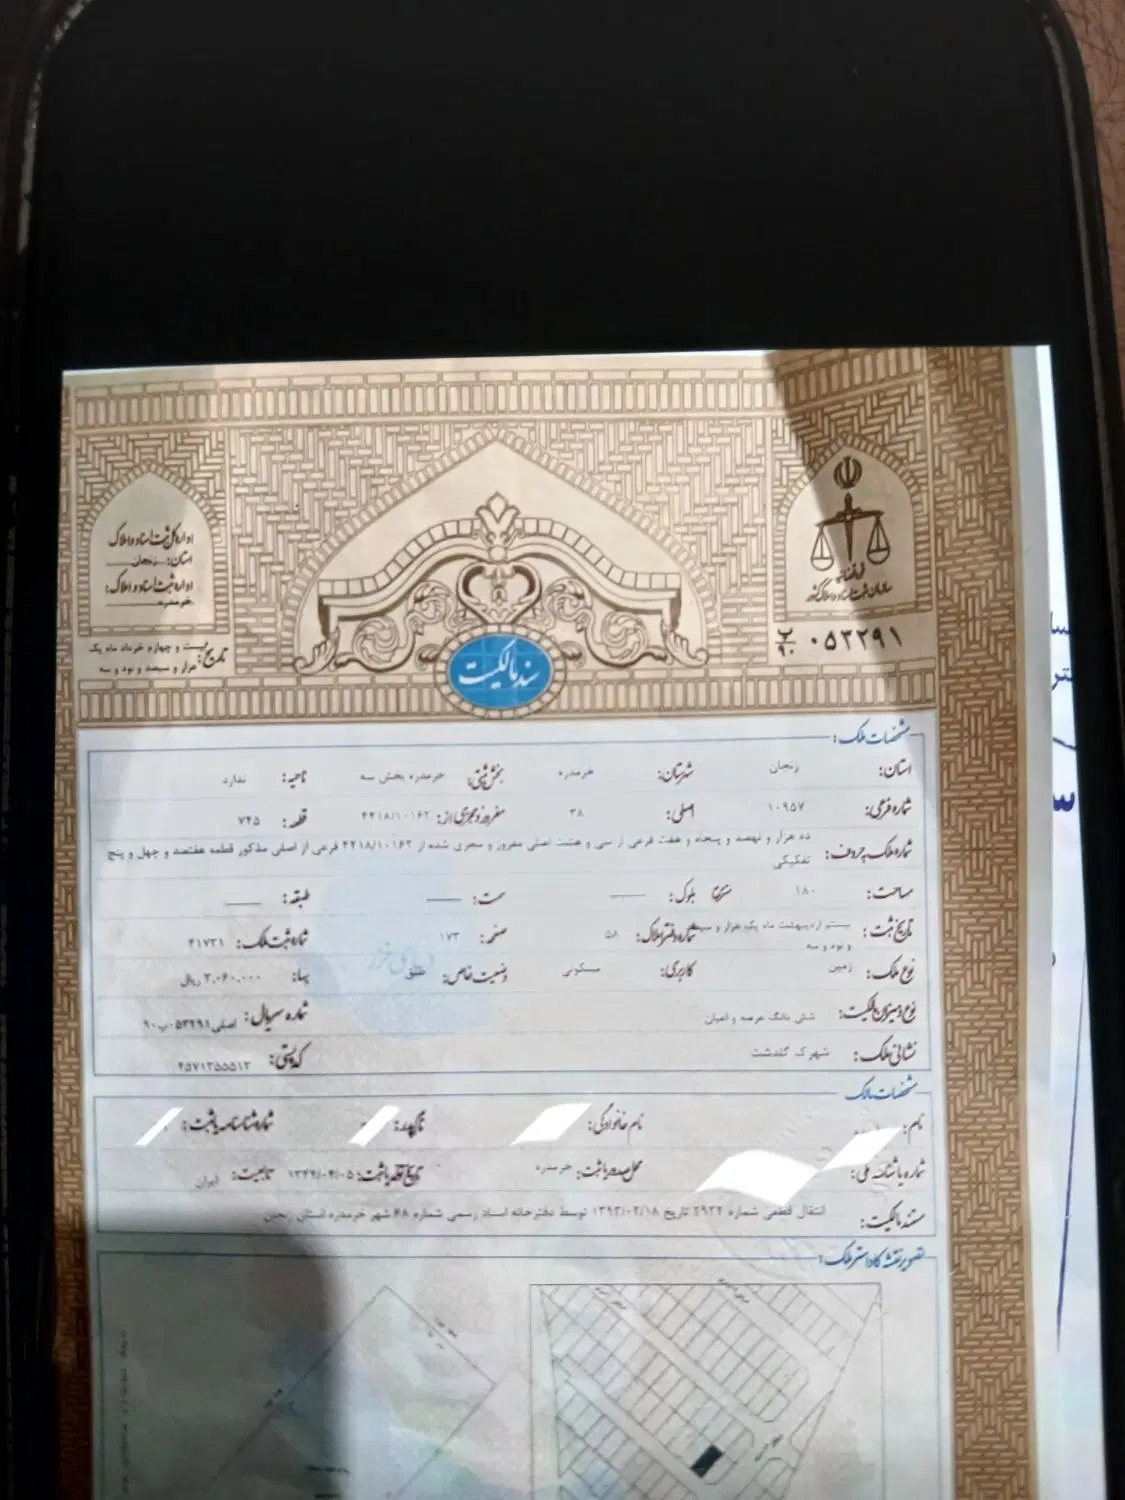 اداره کل ثبت اسناد و املاک
استان: زنجان
اداره ثبت اسناد و املاک:
خرمدره
تاریخ: بیست و چهارم خرداد ماه یک هزار و سیصد و نود و سه
قوه قضائیه
سازمان ثبت اسناد و املاک کشور
۰۵۳۲۹۱ ب ۹۰
سند مالکیت
مشخصات ملک:
استان: زنجان شهرستان: خرمدره بخش ثبتی: خرمدره بخش سه ناحیه: ندارد
شماره فرعی: ۱۰۹۵۷ اصلی: ۳۸ مفروز و مجزی از: ۴۲۱۸/۱۰۱۶۲ قطعه: ۷۴۵
شماره ملک به حروف: ده هزار و نهصد و پنجاه و هفت فرعی از سی و هشت اصلی مفروز و مجزی شده از ۴۲۱۸/۱۰۱۶۲ فرعی از اصلی مذکور قطعه هفتصد و چهل و پنج
تفکیکی
مساحت: ۱۸۰ بلوک: سمت: طبقه:
تاریخ ثبت: بیستم اردیبهشت ماه یک هزار و سیصد و نود و سه شماره دفتر املاک: ۵۸ صفحه: ۱۷۳ شماره ثبت ملک: ۴۱۷۳۱
نوع ملک: زمین کاربری: مسکونی وضعیت خاص: طلق بهاء: ۳,۰۶۰,۰۰۰ ریال
نوع و میزان مالکیت: شش دانگ عرصه و اعیان شماره سریال: اصلی ۰۵۳۲۹۱ ب ۹۰
نشانی ملک: شهرک گلدشت کدپستی: ۴۵۷۱۳۵۵۵۱۳
مشخصات مالک
نام: نام خانوادگی: نام پدر: شماره شناسنامه یا ثبت:
شماره یا شناسه ملی: محل صدور یا ثبت: خرمدره تاریخ تولد یا ثبت: ۱۳۴۲/۰۴/۰۵ تابعیت: ایران
مستند مالکیت: انتقال قطعی شماره ۲۹۲۲ تاریخ ۱۳۹۳/۰۲/۱۸ توسط دفترخانه اسناد رسمی شماره ۶۸ شهر خرمدره استان زنجان
تصویر نقشه کاداستر ملک: